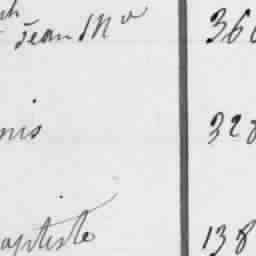 Jean M 36
nis 328
aptiste 138